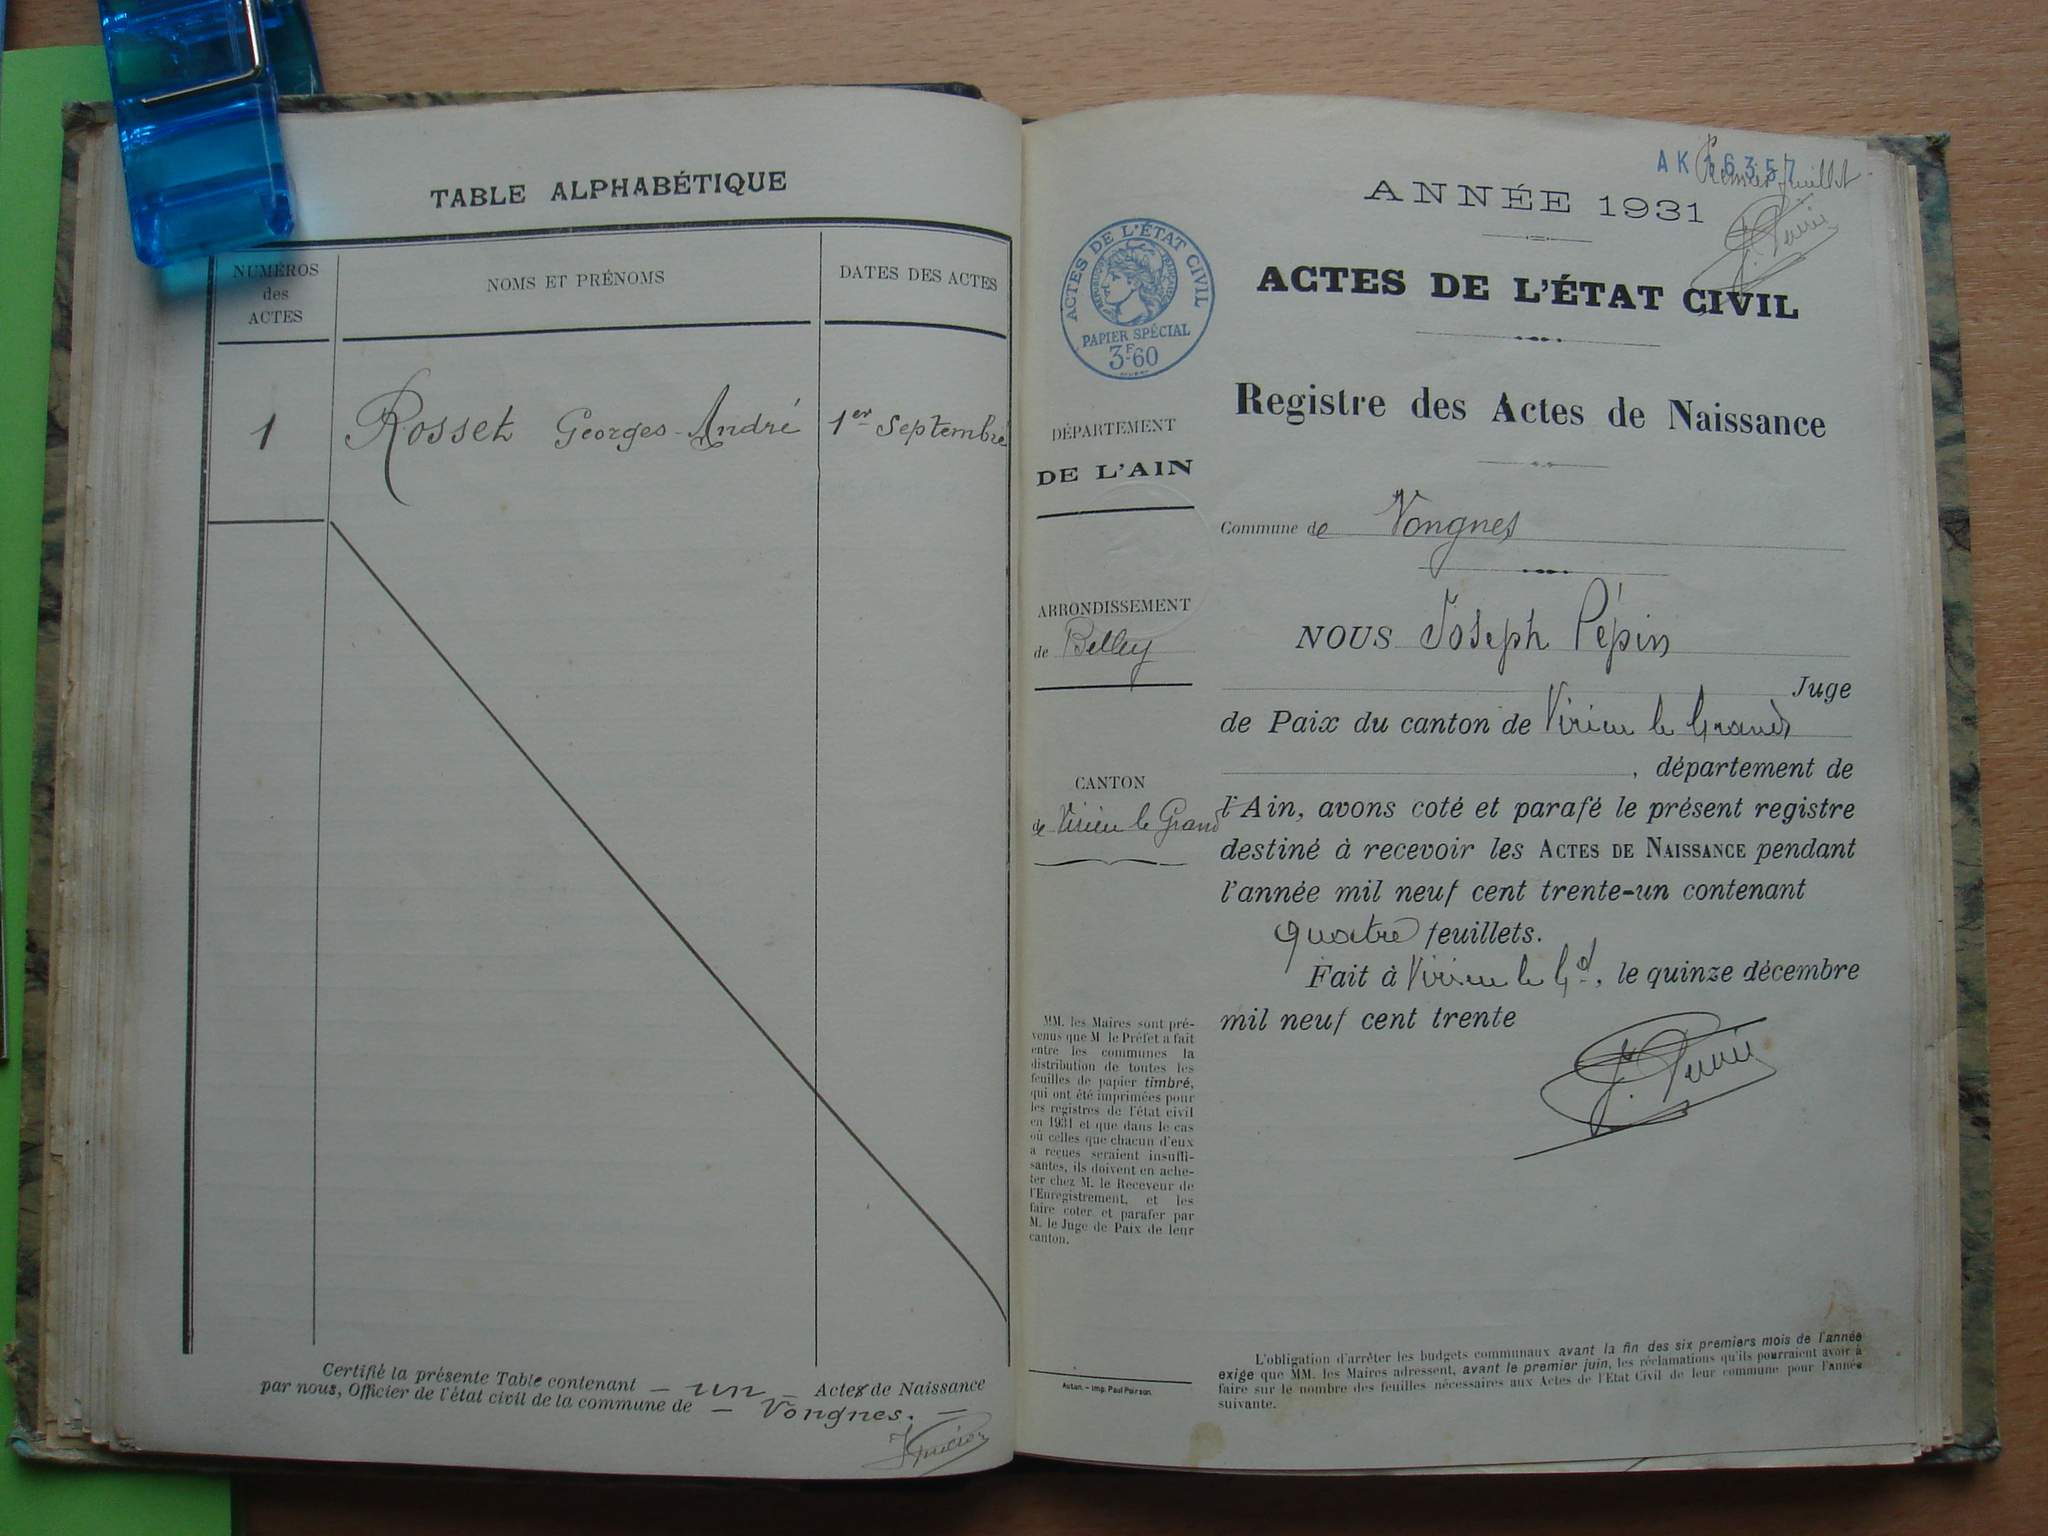 TABLE ALPHABÉTIQUE
NUMÉROS
des
ACTES
NOMS ET PRÉNOMS
DATES DES ACTES
1
Rosset Georges-André
1er Septembre
Certifié la présente Table contenant — un — Actes de Naissance
par nous, Officier de l'état civil de la commune de — Vongnes. —
AK 16357
Premier feuillet
ANNÉE 1931
ACTES DE L'ÉTAT CIVIL
RÉPUBLIQUE FRANÇAISE
PAPIER SPÉCIAL
3F.60
ACTES DE L'ÉTAT CIVIL
Registre des Actes de Naissance
DÉPARTEMENT
DE L'AIN
Commune de Vongnes
ARRONDISSEMENT
de Belley
CANTON
de Virieu le Grand
NOUS Joseph Pépin
Juge
de Paix du canton de Virieu le Grand
, département de
l'Ain, avons coté et parafé le présent registre
destiné à recevoir les ACTES DE NAISSANCE pendant
l'année mil neuf cent trente-un contenant
quatre feuillets.
Fait à Virieu le Gd, le quinze décembre
mil neuf cent trente
MM. les Maires sont pré-
venus que M le Préfet a fait
entre les communes la
distribution de toutes les
feuilles de papier timbré,
qui ont été imprimées pour
les registres de l'état civil
en 1931 et que dans le cas
où celles que chacun d'eux
a reçues seraient insuffi-
santes, ils doivent en ache-
ter chez M. le Receveur de
l'Enregistrement, et les
faire coter et parafer par
M. le Juge de Paix de leur
canton.
Autun. — Imp. Paul Poirson.
L'obligation d'arrêter les budgets communaux avant la fin des six premiers mois de l'année
exige que MM. les Maires adressent, avant le premier juin, les réclamations qu'ils pourraient avoir à
faire sur le nombre des feuilles nécessaires aux Actes de l'Etat Civil de leur commune pour l'année
suivante.